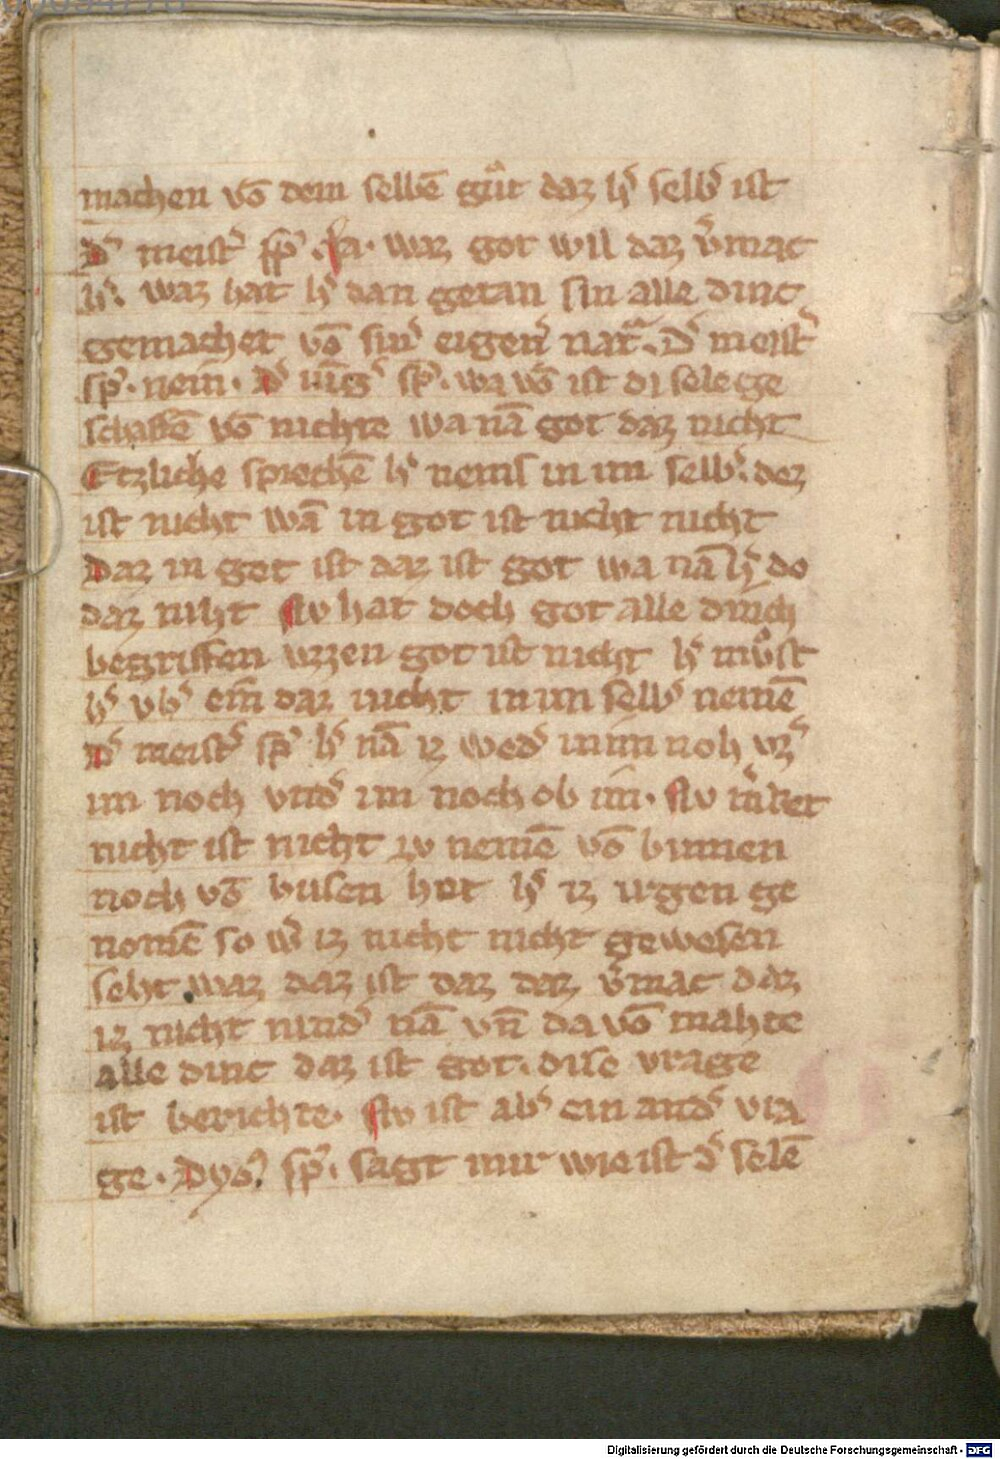 machen vō dem selbē gůt daz h' selb' ist
D' meist' sp̄'. Ja. waz got wil daz v'mac
h'. waz hat h' dan getan sin alle dinc
gemachet vō sin' eigen' nat'. D' meist'
sp̄'. nein. D' iūg' sp̄'. wa vō ist di sele ge
schaffē vō nichte wa nā got daz nicht
Etzliche sprechē h' nems in im selb'. dez
ist nicht wā in got ist nicht nicht
Daz in got ist daz ist got wa nā h' do
daz niht Nv hat doch got alle dinch
begriffen vzzen got ist nicht h' můst
h' vb' ein daz nicht in im selb' nemē
D' meist' sp̄' h' nā iz wed' in im noh vz'
im noch vnd' im noch ob im. Nv m'ket
nicht ist nicht zv nemē vō binnen
noch vō busen het h' iz irgen ge
nomē so w' iz nicht nicht gewesen
seht waz daz ist daz daz v'mac daz
iz nicht nind' nā vn̄ da vō mahte
alle dinc daz ist got. dise vrage
ist berichte. Nv ist ab' ein and' vra
ge. sp̄'. sagt mir wie ist d' selē
Digitalisierung gefördert durch die Deutsche Forschungsgemeinschaft - DFG